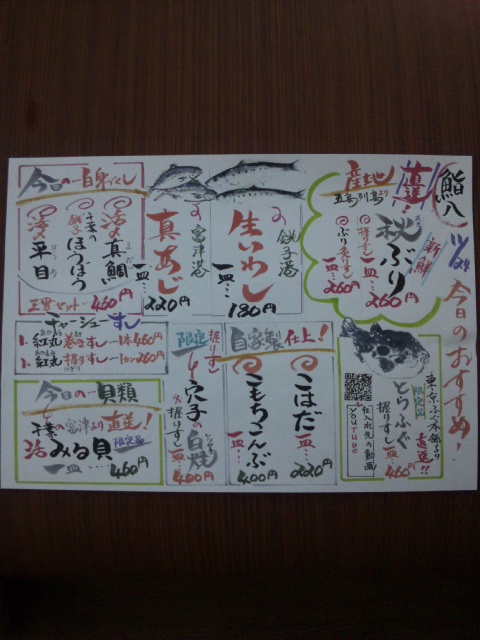 鮨八
11/24
今日のおすすめ!
産地直送
五島列島より
新鮮
秋ぶり
握りすし一皿…260円
ぶり炙りすし
一皿…260円
東京ふぐ本舗より
直送!!
限定品
とらふぐ
握りすし
一皿…460円
仕入れ先の動画
YOUTUBE
銚子港の
生いわし
一皿…180円
富津港の
真あじ
一皿…220円
今日の白身づくし
活の真鯛
千葉の
銚子
ほうぼう
活の平目
三貫セット…460円
チャーシューすし
1. 紅丸巻きすし…1本460円
1. 紅丸握りすし…1カン260円
今日の貝類
千葉の富津より直送!
限定品
活みる貝
一皿…460円
限定
握りすし
穴子の白焼
※握りすし
一皿…400円
自家製仕上!
こはだ
一皿…220円
こもちこんぶ
一皿…400円